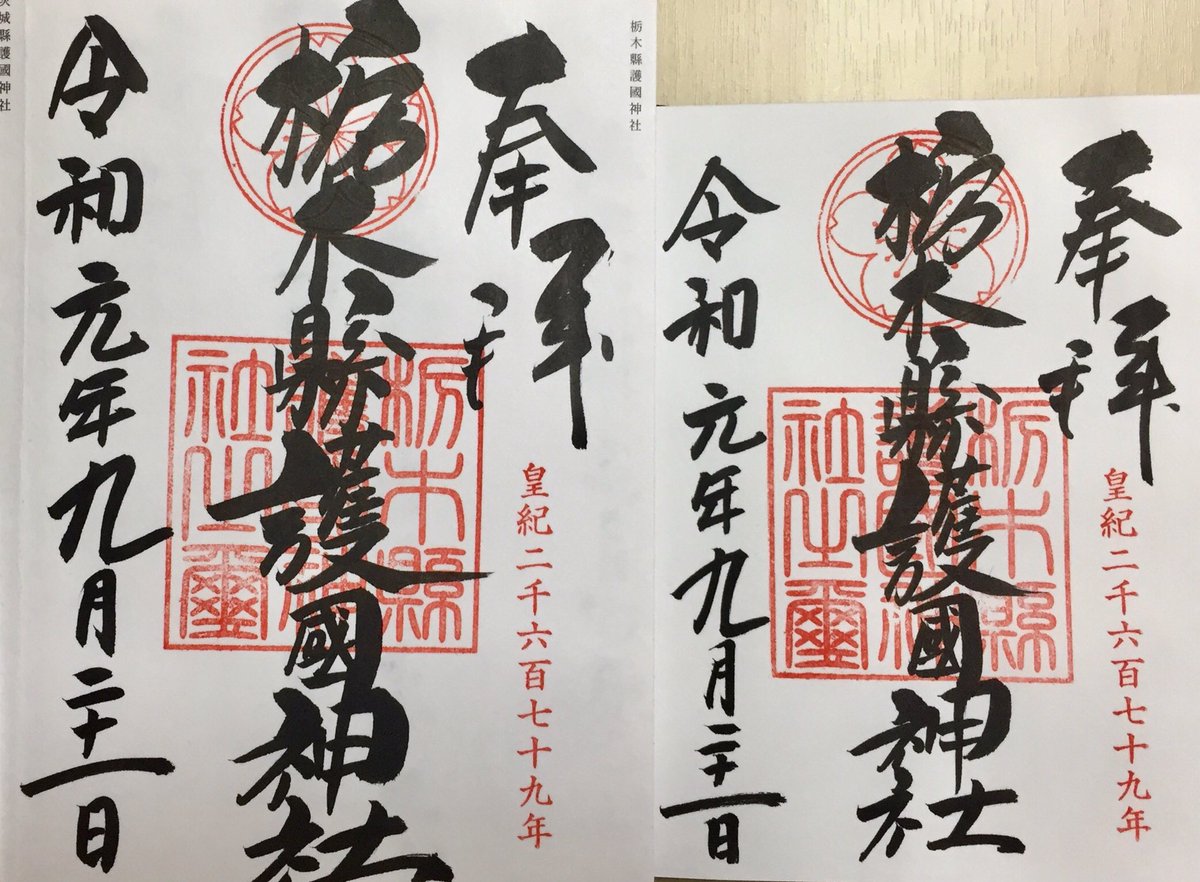 栃木縣護國神社
奉拝
皇紀二千六百七十九年
栃木縣護國神社
栃木縣
社之璽
令和元年九月二十一日
城縣護國神社
奉拝
皇紀二千六百七十九年
栃木縣護國神社
栃木縣
社之璽
令和元年九月二十一日